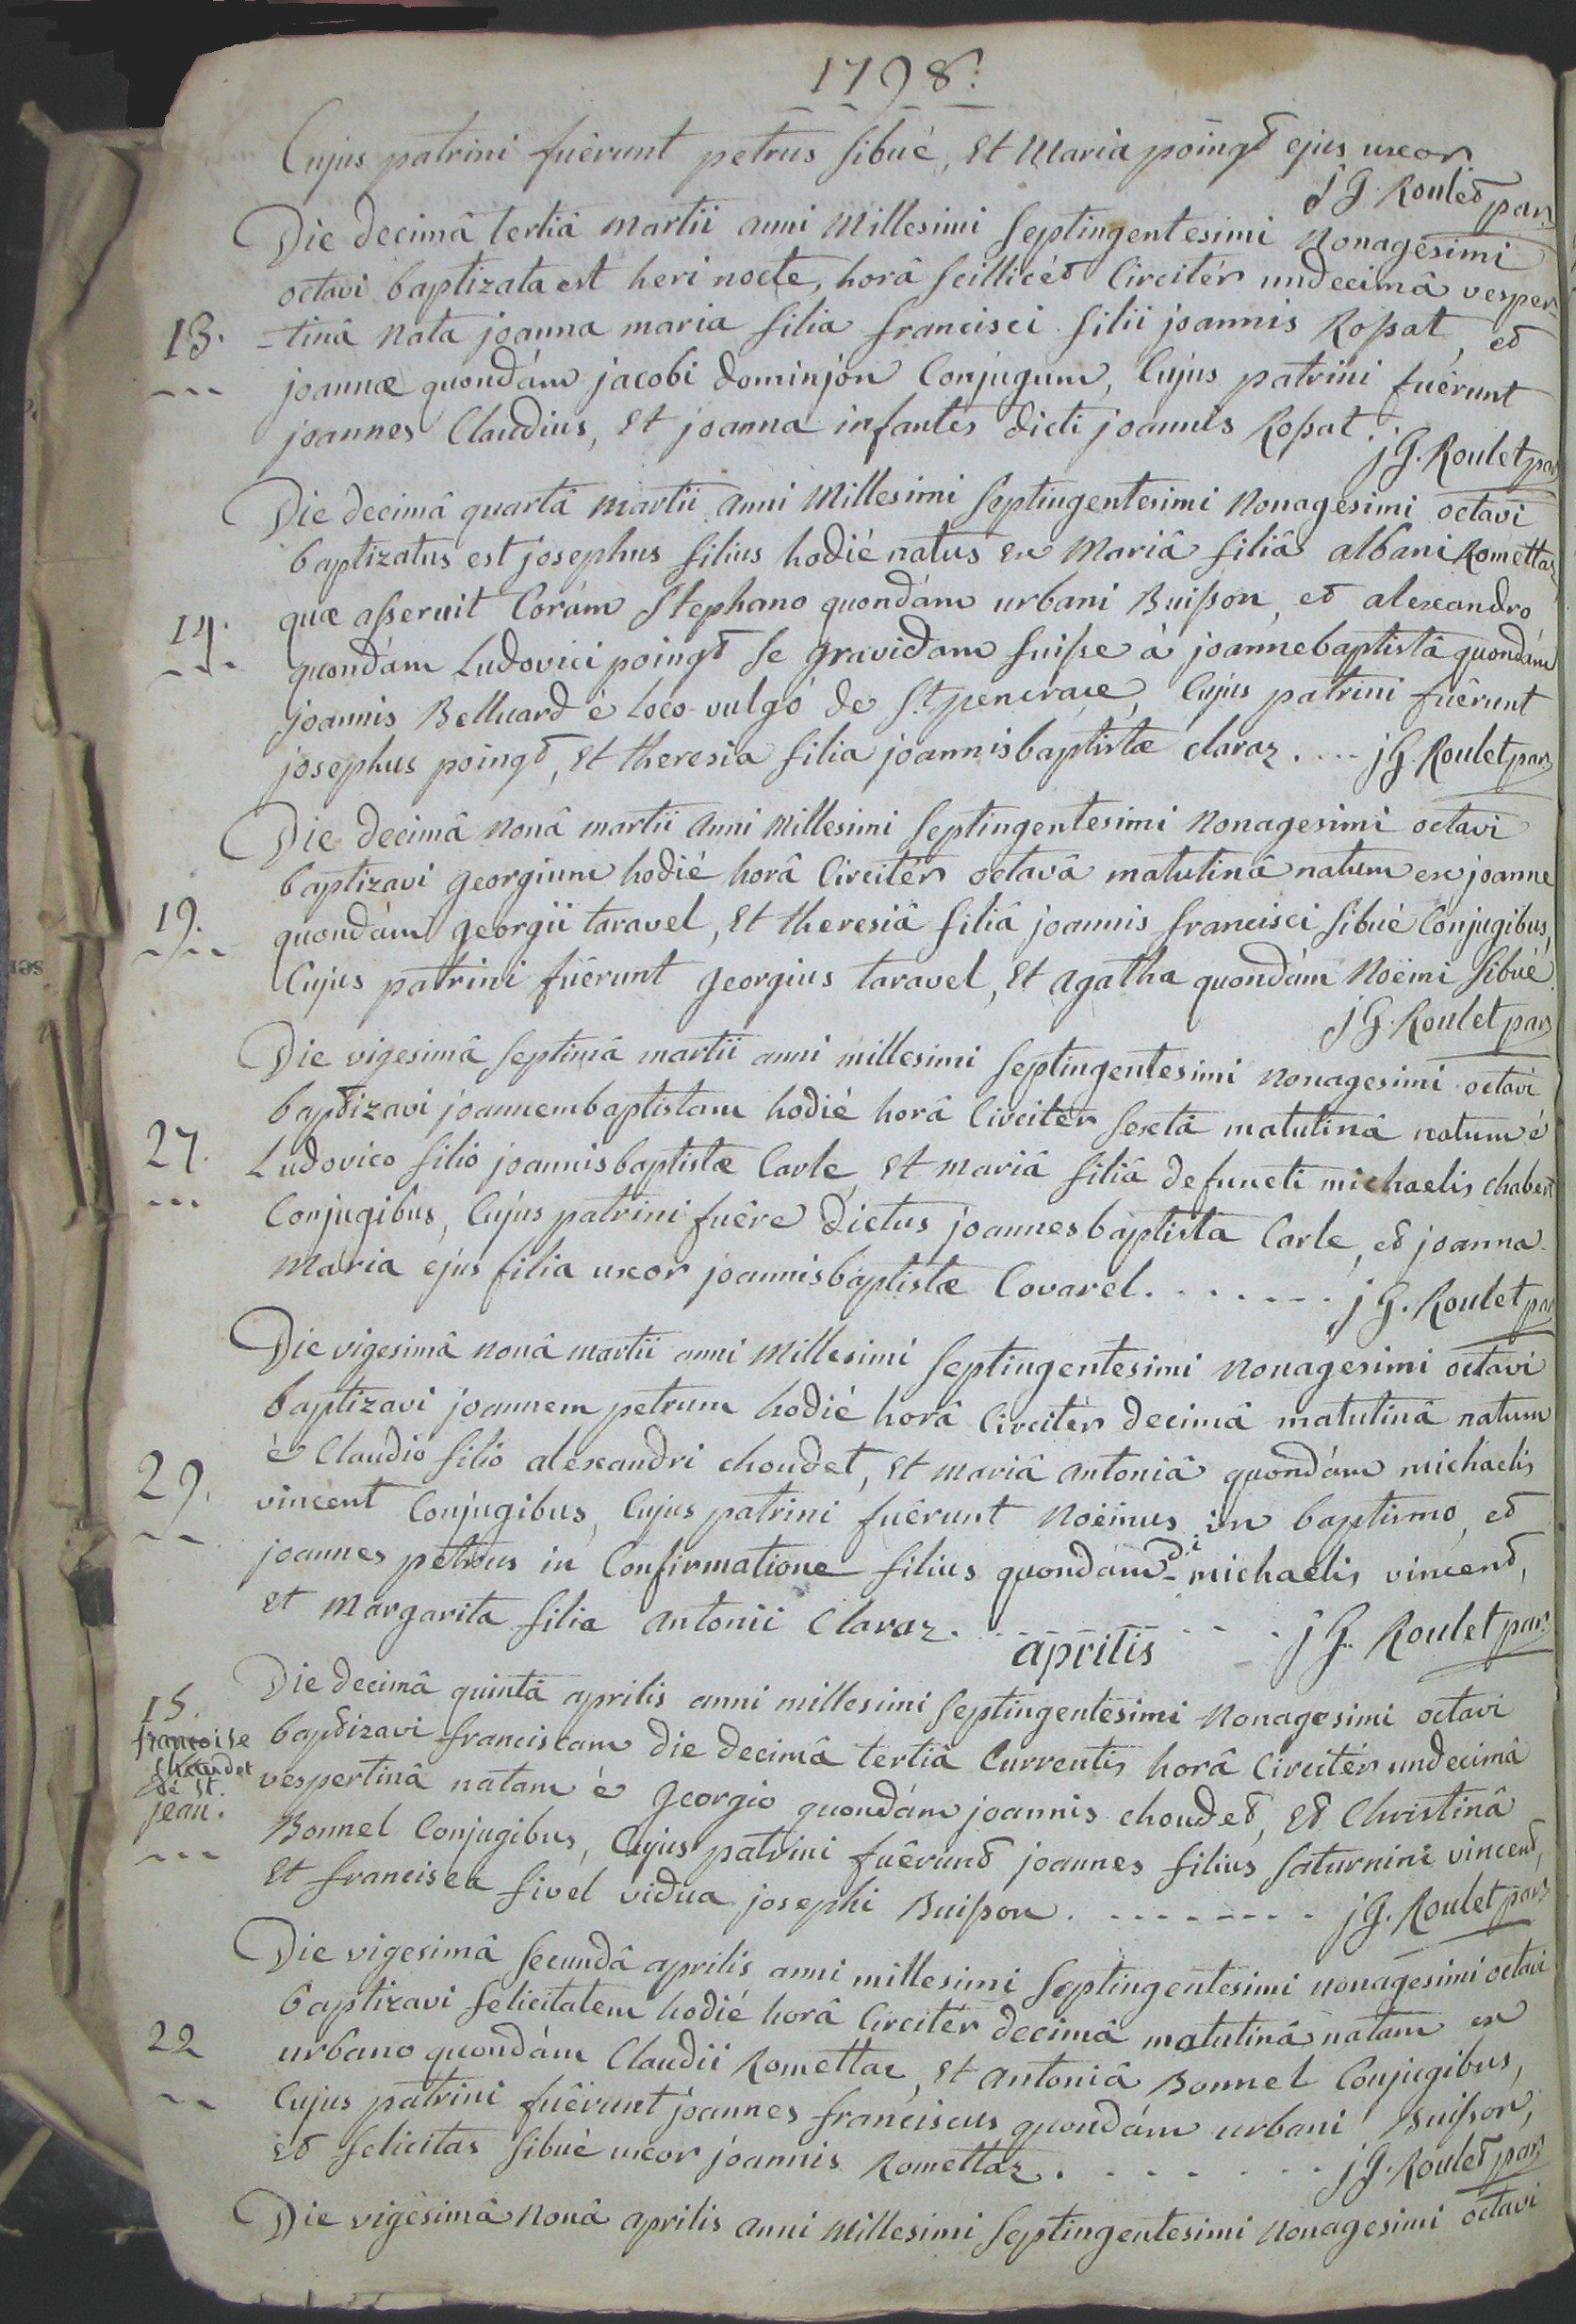 1798.
Cujus patrini fuêrunt petrus sibué, et Maria poingt ejus uxor
J G. Roulet par.
Die decimâ tertiâ martii anni Millesimi septingentesimi Nonagesimi
octavi baptizata est heri nocte, horâ scillicét Circitér undecimâ vesper-
13. -tinâ nata joanna maria filia francisci filii joannis Roſsat, et
joannæ quondám jacobi dominjon Conjugum, Cujus patrini fuêrunt
joannes Claudius, et joanna infantes dicti joannis Roſsat.
j G. Roulet par
Die decimâ quartâ martii anni Millesimi septingentesimi Nonagesimi octavi
baptizatus est josephus filius hodié natus ex Mariâ filiâ albani Romettaz
quæ aſseruit Corám Stephano quondám urbani Buiſson, et alexandro
14. quondám Ludovici poingt se gravidam fuiſse à joannebaptistâ quondám
joannis Belluard é loco vulgó de St pencraçe, Cujus patrini fuêrunt
josephus poingt, et theresia filia joannisbaptistæ claraz .... j G. Roulet par.
Die decimâ nonâ martii anni Millesimi septingentesimi Nonagesimi octavi
baptizavi georgium hodié horâ Circitér octavâ matutinâ natum ex joanne
19. quondám georgii taravel, et theresiâ filiâ joannis francisci sibué Conjugibus,
Cujus patrini fuêrunt georgius taravel, et agatha quondám Noëmi sibué
J G. Roulet par
Die vigesimâ septimâ martii anni millesimi septingentesimi nonagesimi octavi
baptizavi joannembaptistam hodié horâ Circitér sextâ matutinâ natum é
27. Ludovico filio joannisbaptistæ Carle, et mariâ filiâ defuncti michaelis chabert
Conjugibus, Cujus patrini fuêre dictus joannesbaptista Carle, et joanna
maria ejus filia uxor joannisbaptistæ Covarel. . . . . . . . j G. Roulet par
Die vigesimâ nonâ martii anni Millesimi septingentesimi nonagesimi octavi
baptizavi joannem petrum hodié horâ Circitér decimâ matutinâ natum
é Claudio filio alexandri choudet, et mariâ antoniâ quondám michaelis
29. vincent Conjugibus, Cujus patrini fuêrunt Noëmus in baptismo, et
joannes petrus in Confirmatione filius quondám di michaelis vincent,
et Margarita filia antonii Claraz. . . . . . j G. Roulet par.
aprilis
Die decimâ quintâ aprilis anni millesimi septingentesimi Nonagesimi octavi
15. françoise choudet de st. jean.
baptizavi franciscam die decimâ tertiâ Currentis horâ Circitér undecimâ
vespertinâ natam é georgio quondám joannis choudet, et Christinâ
Bonnel Conjugibus, Cujus patrini fuêrunt joannes filius saturnini vincent,
et francisca sivel vidua josephi Buiſson. . . . . . . . . j G. Roulet par
Die vigesimâ secundâ aprilis anni millesimi septingentesimi nonagesimi octavi
baptizavi felicitatem hodié horâ Circitér decimâ matutinâ natam ex
22 urbano quondám Claudii Romettaz, et antoniâ Bonnel Conjugibus,
Cujus patrini fuêrunt joannes franciscus quondám urbani Buiſson,
et felicitas sibué uxor joannis Romettaz. . . . . . . . j G. Roulet par
Die vigesimâ nonâ aprilis anni Millesimi septingentesimi nonagesimi octavi